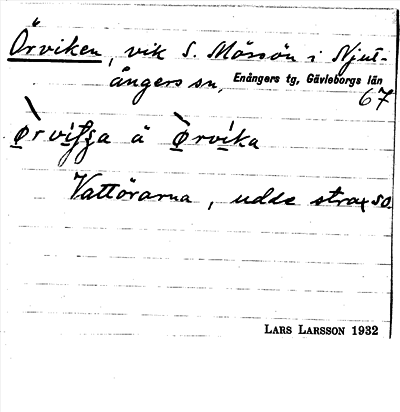 Örviken, vik S. Mössön i Njut-
ångers sn, Enångers tg, Gävleborgs län
67
å
Vattörarna, udde strax so.
LARS LARSSON 1932